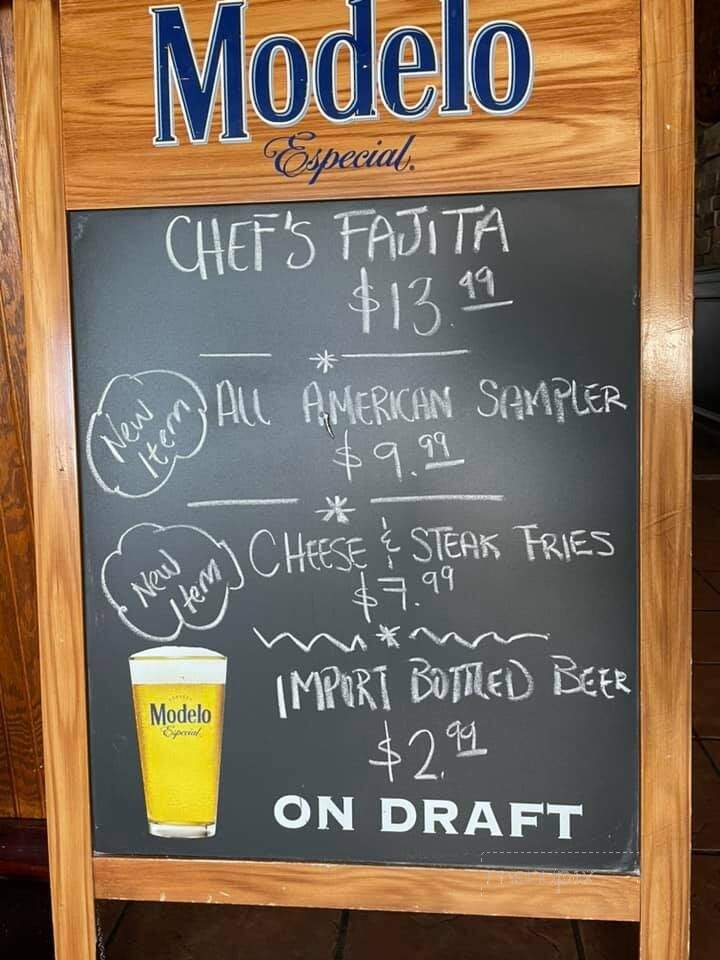 Modelo
Especial.
CHEF'S FAJITA
$13.99
New Item
ALL AMERICAN SAMPLER
$9.99
New Item
CHEESE & STEAK FRIES
$7.99
IMPORT BOTTLED BEER
$2.99
Modelo
Especial
ON DRAFT